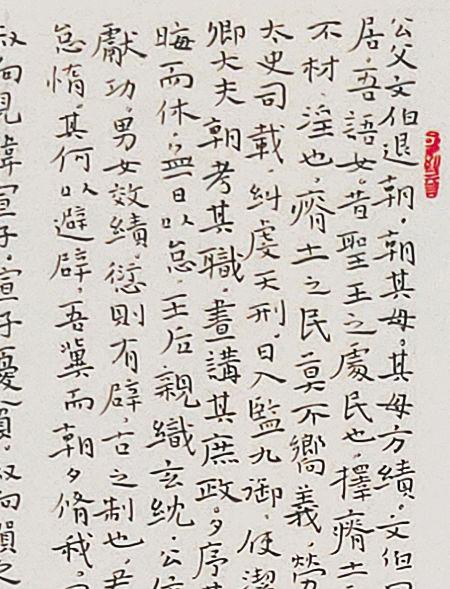 公父文伯退朝。朝其母。其母方績。文伯
居。吾語女。昔聖王之處民也。擇瘠土
不材。淫也。瘠土之民莫不嚮義。勞
太史司載。糾虔天刑。日入監九御。使潔
卿大夫朝考其職。晝講其庶政。夕序其
晦而休。無日以怠。王后親織玄紞。公侯
獻功。男女效績。愆則有辟。古之制也。君
怠惰。其何以避辟。吾冀而朝夕脩我。
叔向見韓宣子。宣子憂